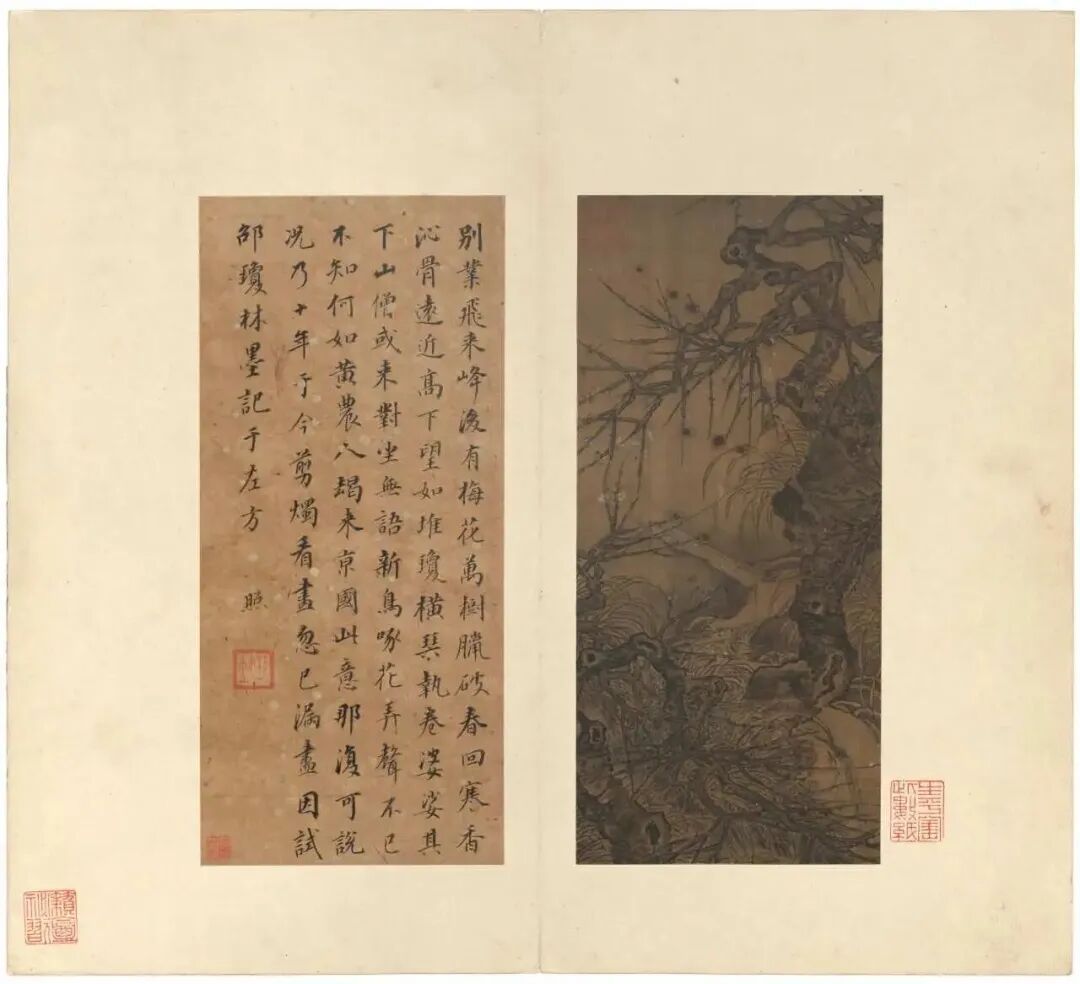 別業飛来峰後有梅花萬樹臘破春回寒香
沁骨遠近高下望如堆瓊橫琴執卷婆娑其
下山僧或来對坐無語新鳥啄花弄聲不已
不知何如黃農人朅来京國此意那復可說
況乃十年于今剪燭看畫忽已漏盡因試
邵瓊林墨記于左方
照